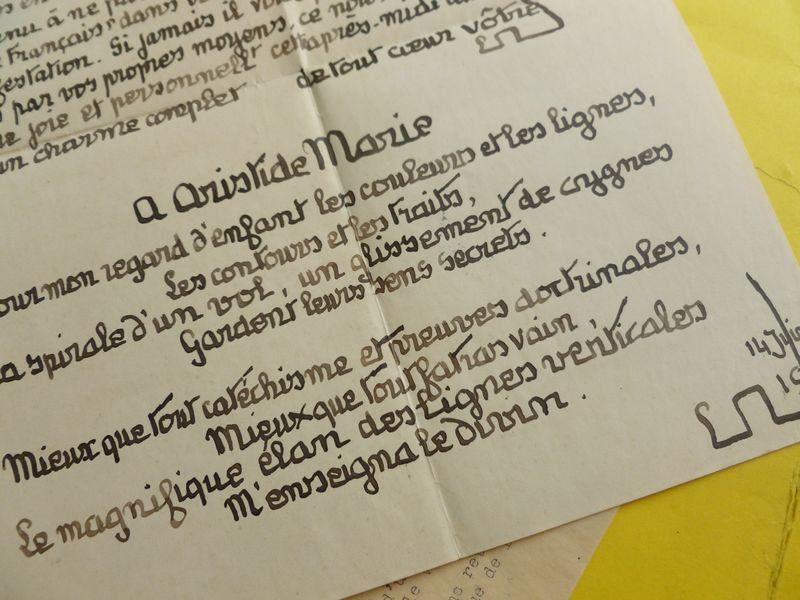 enu à ne pu
français" dans v
gestation. Si jamais il vou
par vos propres moyens, ce nou
ne joie et personnell cet après-midi au
un charme complet de tout cœur vôtre
A Aristide Marie
our mon regard d'enfant les couleurs et les lignes,
Les contours et les traits,
a spirale d'un vol, un glissement de cygnes
Gardent leurs sens secrets.
Mieux que tout catéchisme et preuves doctrinales,
Mieux que tout fatras vain,
Le magnifique élan des lignes verticales
M'enseigna le divin.
14 Jui